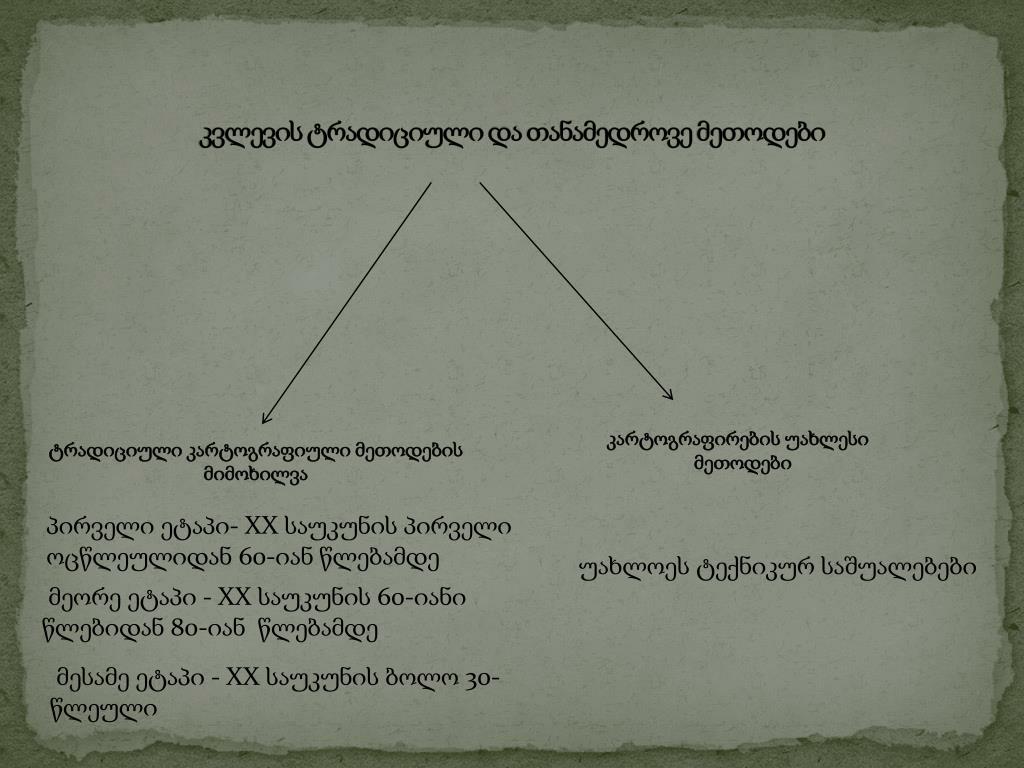 კვლევის ტრადიციული და თანამედროვე მეთოდები
ტრადიციული კარტოგრაფიული მეთოდების
მიმოხილვა
პირველი ეტაპი- XX საუკუნის პირველი
ოცწლეულიდან 60-იან წლებამდე
მეორე ეტაპი - XX საუკუნის 60-იანი
წლებიდან 80-იან წლებამდე
მესამე ეტაპი - XX საუკუნის ბოლო 30-
წლეული
კარტოგრაფირების უახლესი
მეთოდები
უახლოეს ტექნიკურ საშუალებები